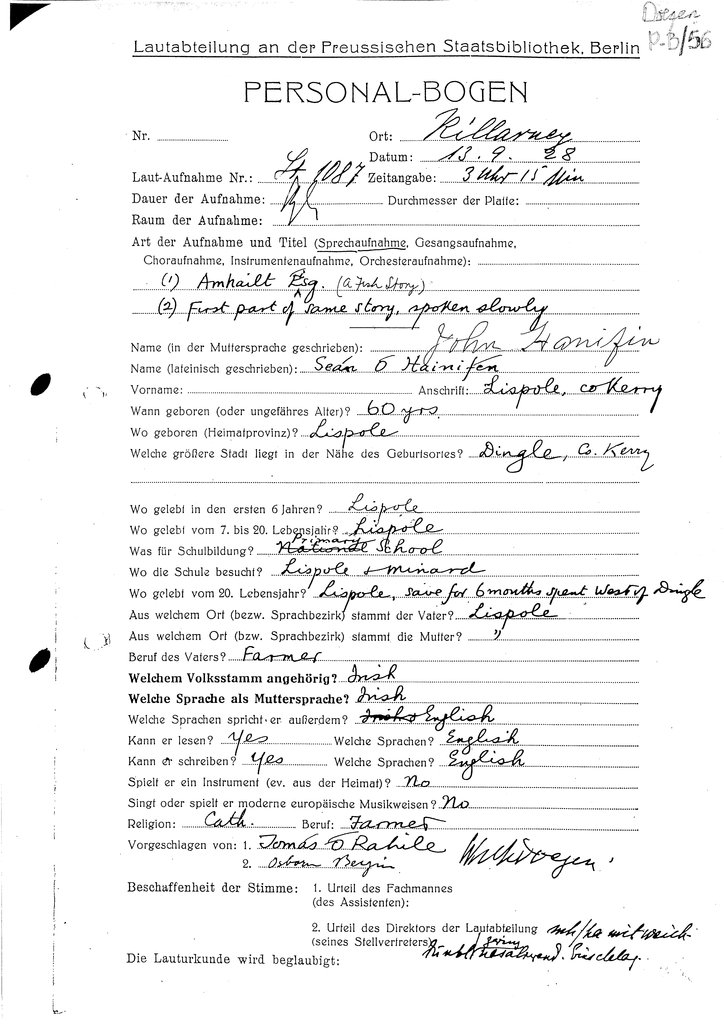 Doegen
Lautabteilung an der Preussischen Staatsbibliothek, Berlin
PERSONAL-BOGEN
Nr.
Ort: Killarney
Datum: 13. 9. 28
Laut-Aufnahme Nr.: 1087 Zeitangabe: 3 Uhr 15 Min
Dauer der Aufnahme: Durchmesser der Platte:
Raum der Aufnahme:
Art der Aufnahme und Titel (Sprechaufnahme, Gesangsaufnahme,
Choraufnahme, Instrumentenaufnahme, Orchesteraufnahme):
(1) Amhailt Éisg. (a Fish Story)
(2) First part of same story, spoken slowly
Name (in der Muttersprache geschrieben): John Hanifin
Name (lateinisch geschrieben): Seán Ó Hainifen
Vorname: Anschrift: Lispole, co Kerry
Wann geboren (oder ungefähres Alter)? 60 yrs.
Wo geboren (Heimatprovinz)? Lispole
Welche größere Stadt liegt in der Nähe des Geburtsortes? Dingle, Co. Kerry
Wo gelebt in den ersten 6 Jahren? Lispole
Wo gelebt vom 7. bis 20. Lebensjahr? Lispole
Was für Schulbildung? National Primary School
Wo die Schule besucht? Lispole & Minard
Wo gelebt vom 20. Lebensjahr? Lispole, save for 6 months spent West of Dingle
Aus welchem Ort (bezw. Sprachbezirk) stammt der Vater? Lispole
Aus welchem Ort (bzw. Sprachbezirk) stammt die Mutter? "
Beruf des Vaters? Farmer
Welchem Volksstamm angehörig? Irish
Welche Sprache als Muttersprache? Irish
Welche Sprachen spricht er außerdem? Irish & English
Kann er lesen? Yes Welche Sprachen? English
Kann er schreiben? Yes Welche Sprachen? English
Spielt er ein Instrument (ev. aus der Heimat)? No
Singt oder spielt er moderne europäische Musikweisen? No
Religion: Cath. Beruf: Farmer
Vorgeschlagen von: 1. Tomás Ó Rahile
2. Osborn Bergin
Beschaffenheit der Stimme: 1. Urteil des Fachmannes
(des Assistenten):
2. Urteil des Direktors der Lautabteilung
(seines Stellvertreters)
Die Lauturkunde wird beglaubigt: